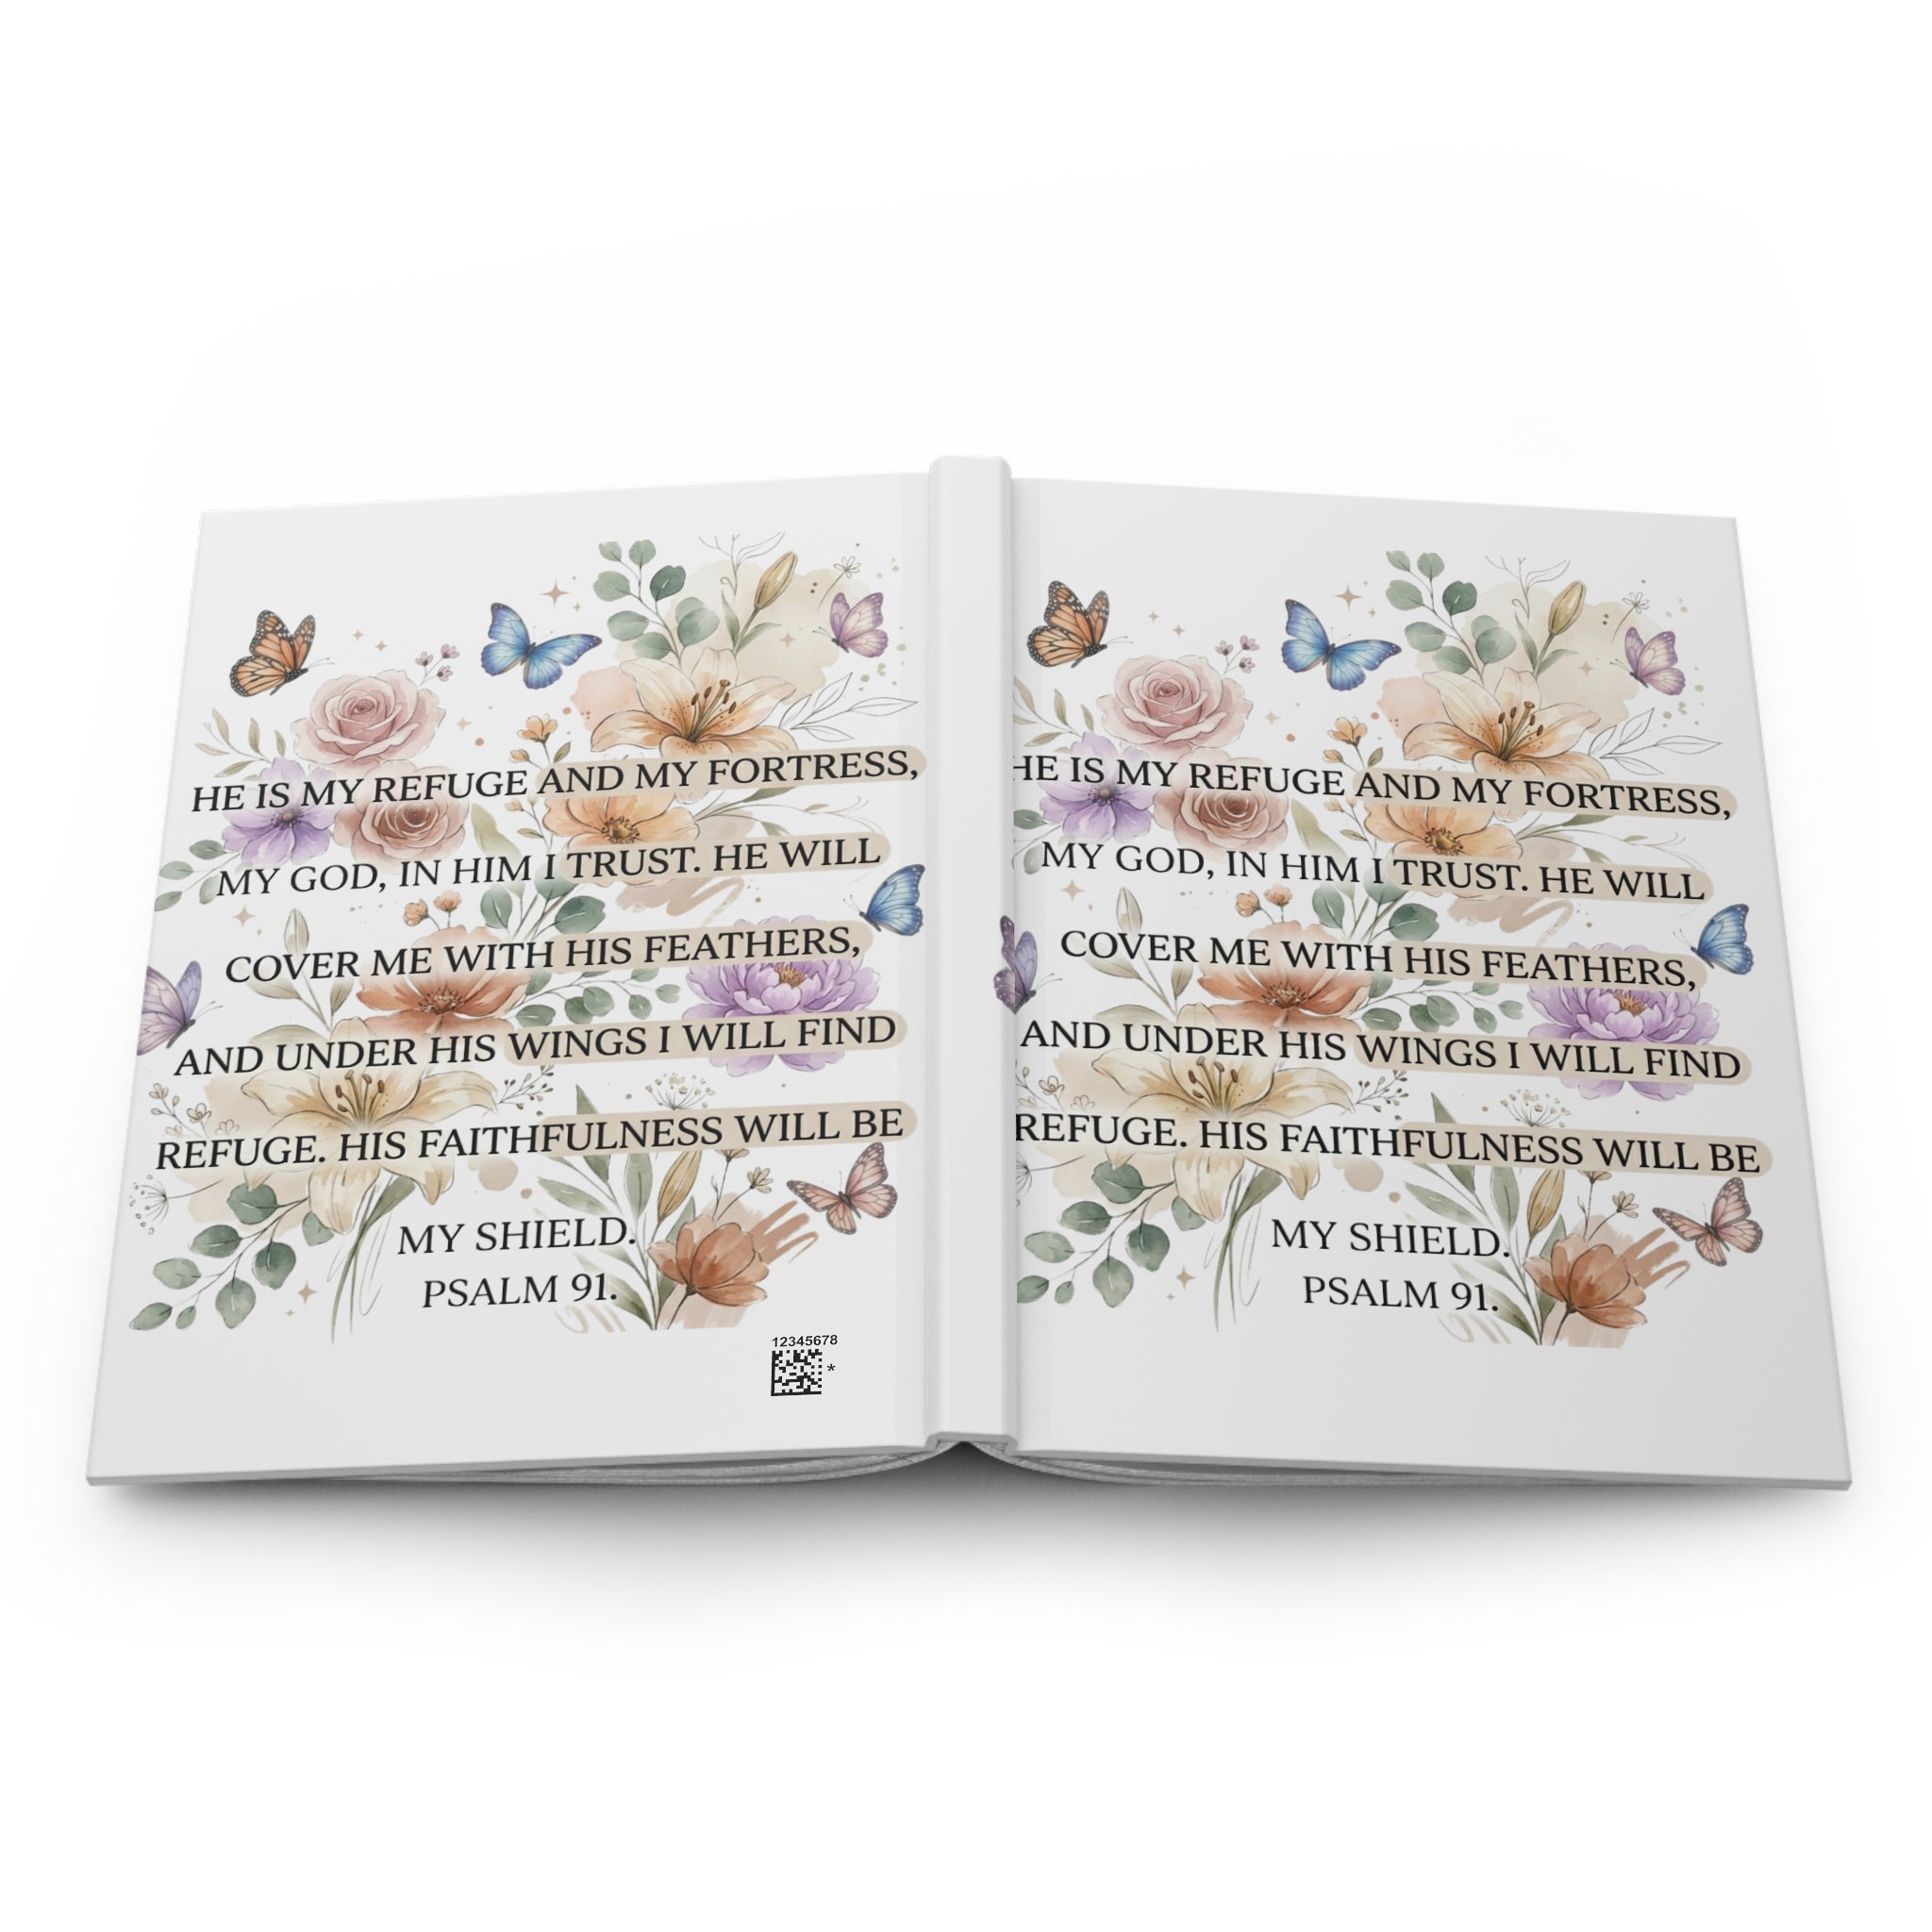 HE IS MY REFUGE AND MY FORTRESS,
MY GOD, IN HIM I TRUST. HE WILL
COVER ME WITH HIS FEATHERS,
AND UNDER HIS WINGS I WILL FIND
REFUGE. HIS FAITHFULNESS WILL BE
MY SHIELD.
PSALM 91.
12345678
*
HE IS MY REFUGE AND MY FORTRESS,
MY GOD, IN HIM I TRUST. HE WILL
COVER ME WITH HIS FEATHERS,
AND UNDER HIS WINGS I WILL FIND
REFUGE. HIS FAITHFULNESS WILL BE
MY SHIELD.
PSALM 91.